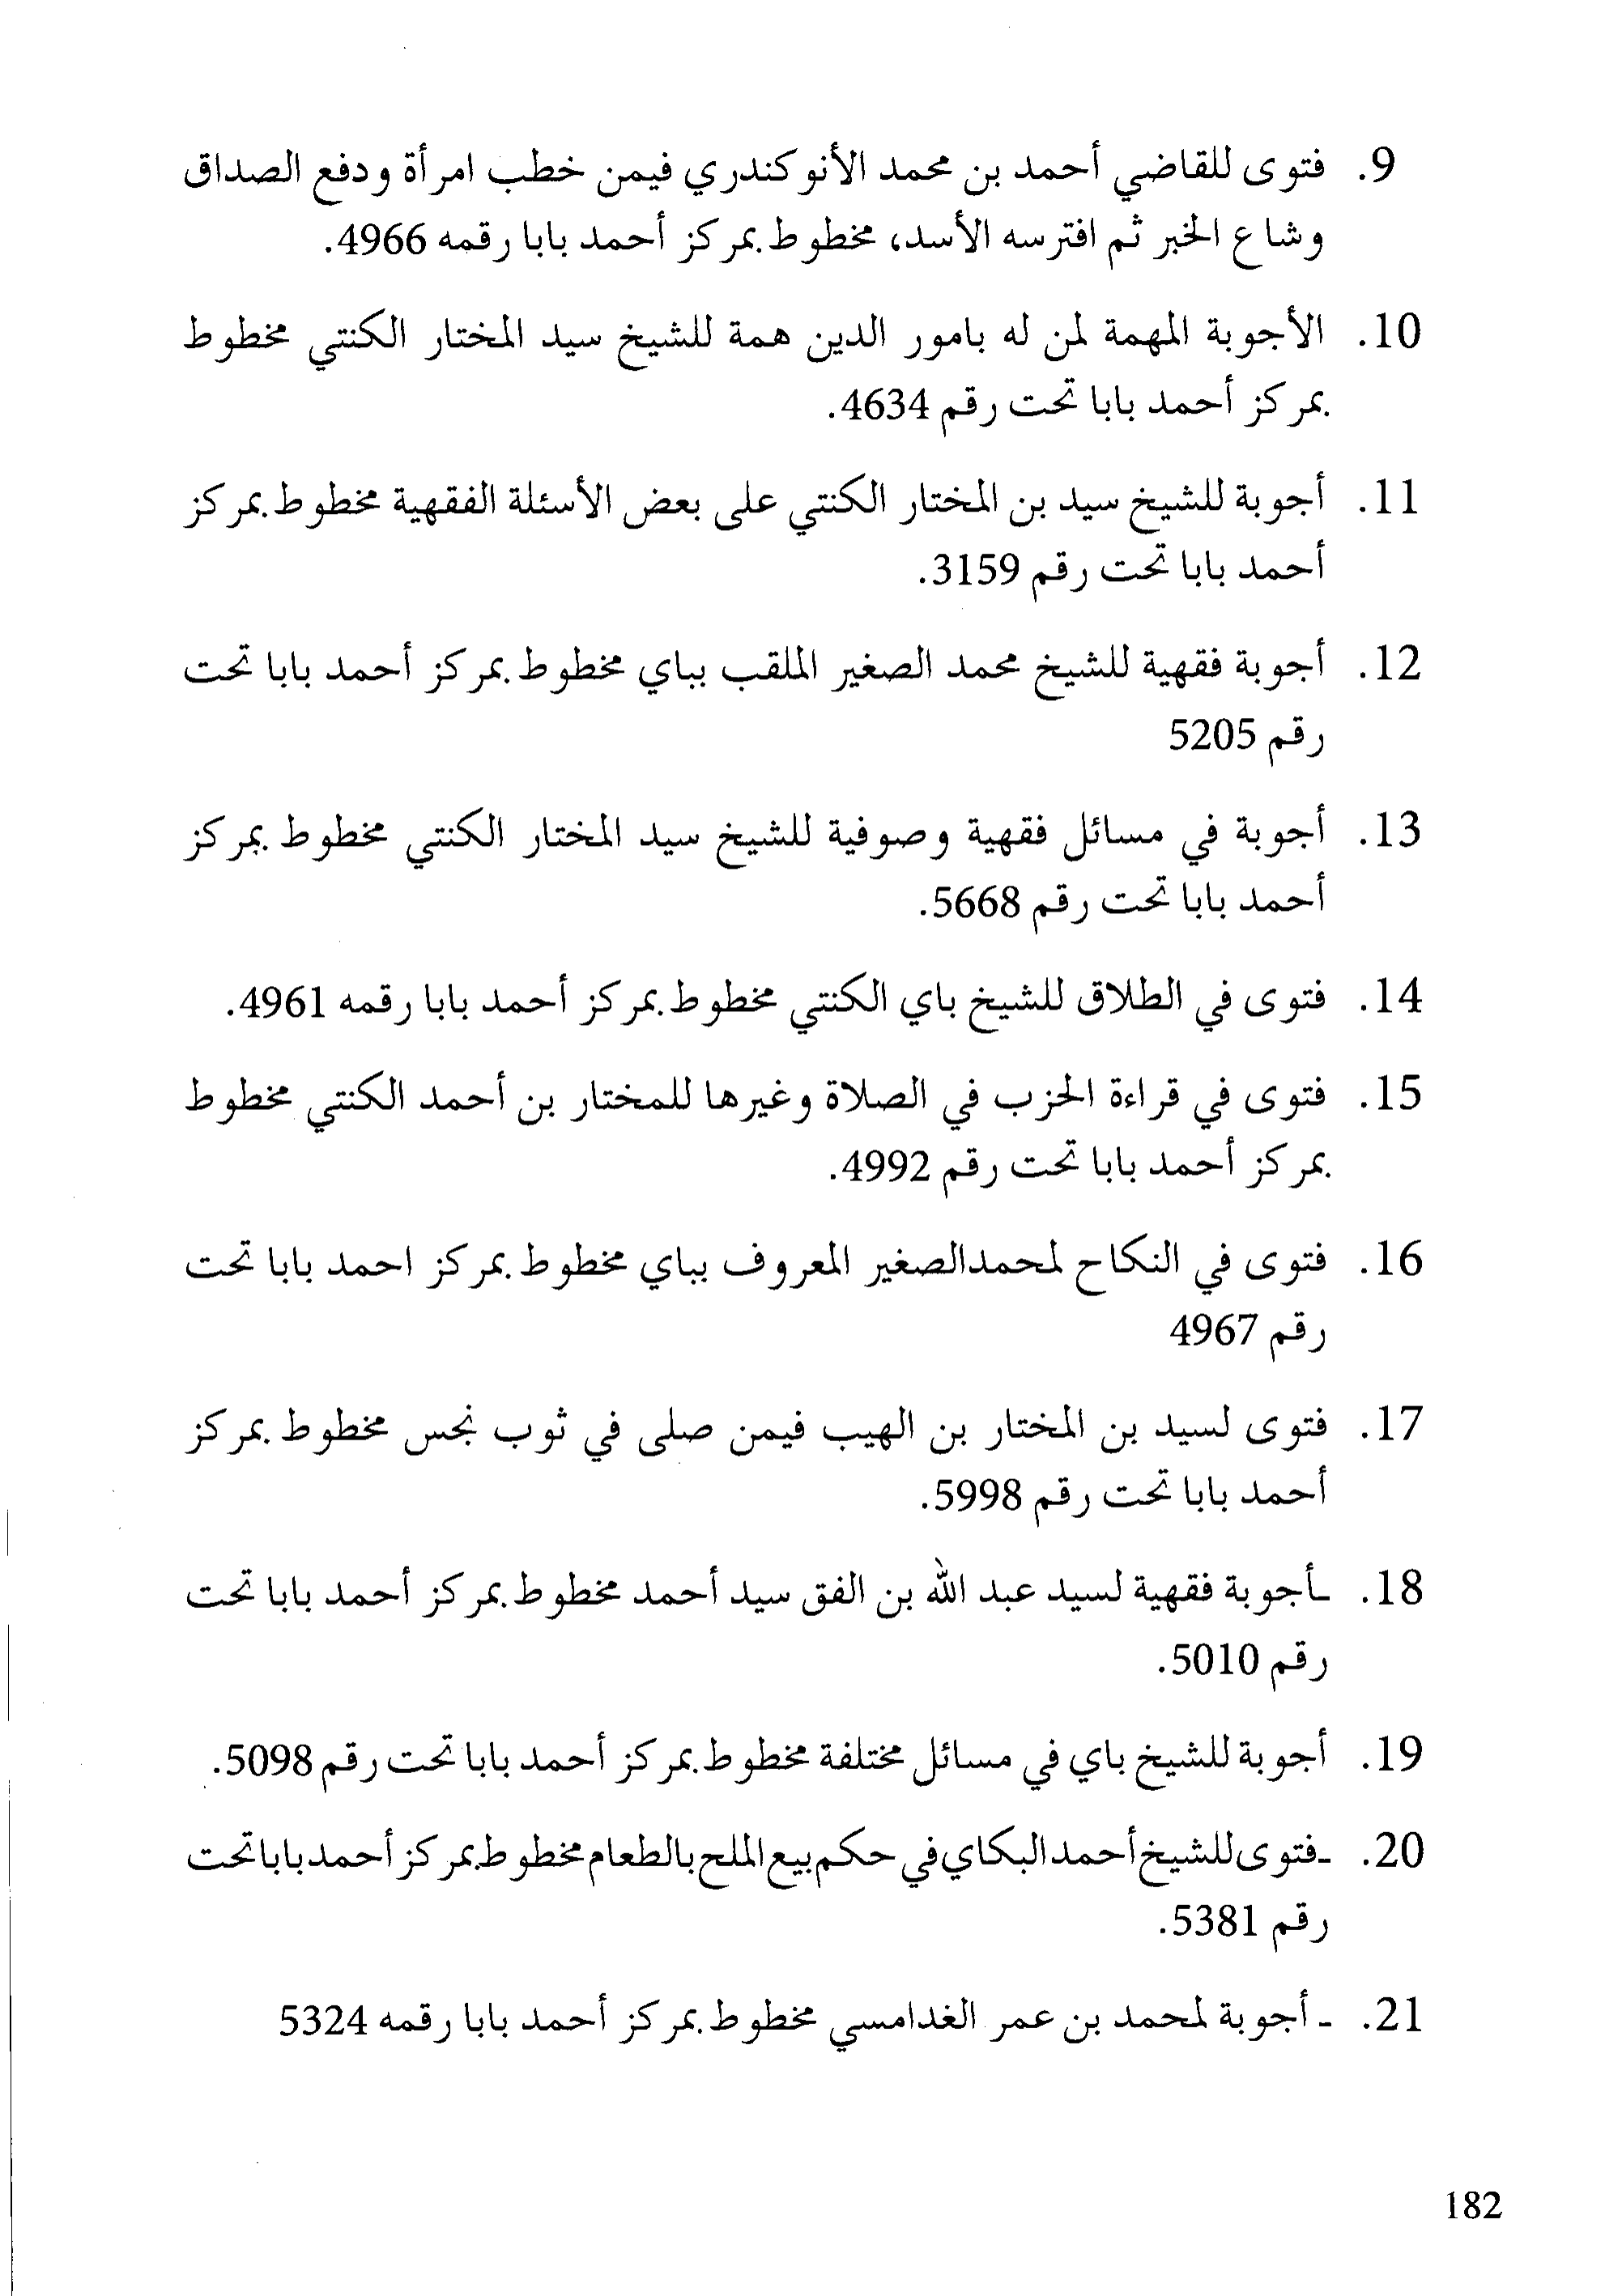 9. فتوى للقاضي أحمد بن محمد الأنوكندري فيمن خطب امرأة ودفع الصداق
وشاع الخبر ثم افترسه الأسد، مخطوط بمركز أحمد بابا رقمه 4966.
10. الأجوبة المهمة لمن له بامور الدين همة للشيخ سيد المختار الكنتي مخطوط
بمركز أحمد بابا تحت رقم 4634.
11. أجوبة للشيخ سيد بن المختار الكنتي على بعض الأسئلة الفقهية مخطوط بمركز
أحمد بابا تحت رقم 3159.
12. أجوبة فقهية للشيخ محمد الصغير الملقب بباي مخطوط بمركز أحمد بابا تحت
رقم 5205
13. أجوبة في مسائل فقهية وصوفية للشيخ سيد المختار الكنتي مخطوط بمركز
أحمد بابا تحت رقم 5668.
14. فتوى في الطلاق للشيخ باي الكنتي مخطوط بمركز أحمد بابا رقمه 4961.
15. فتوى في قراءة الحزب في الصلاة وغيرها للمختار بن أحمد الكنتي مخطوط
بمركز أحمد بابا تحت رقم 4992.
16. فتوى في النكاح لمحمدالصغير المعروف بباي مخطوط بمركز احمد بابا تحت
رقم 4967
17. فتوى لسيد بن المختار بن الهيب فيمن صلى في ثوب نجس مخطوط بمركز
أحمد بابا تحت رقم 5998.
18. ـأجوبة فقهية لسيد عبد الله بن الفق سيد أحمد مخطوط بمركز أحمد بابا تحت
رقم 5010.
19. أجوبة للشيخ باي في مسائل مختلفة مخطوط بمركز أحمد بابا تحت رقم 5098.
20. ـفتوى للشيخ أحمد البكاي في حكم بيع الملح بالطعام مخطوط بمركز أحمد بابا تحت
رقم 5381.
21. ـ أجوبة لمحمد بن عمر الغدامسي مخطوط بمركز أحمد بابا رقمه 5324
182